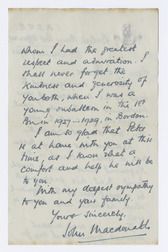 whom I had the greatest
respect and admiration. I
shall never forget the
kindness and generosity of
you both, when I was a
young subaltern in the 1st
Bn in 1927-1929, in Bordon.
I am so glad that Peter
is at home with you at this
time, as I know what a
comfort and help he will be
to you.
With my deepest sympathy
to you and your family.
Yours sincerely,
John Macdonald